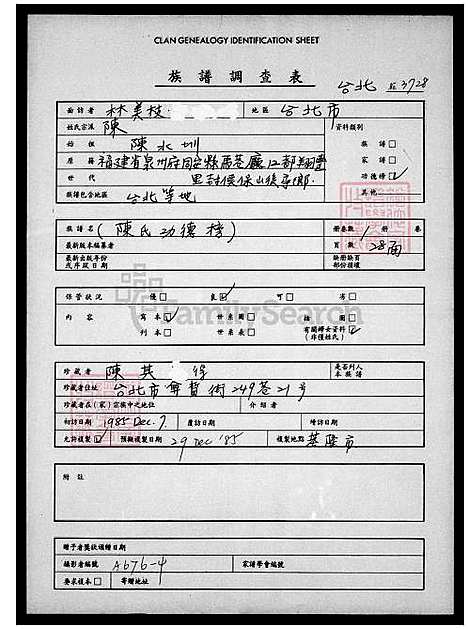 CLAN GENEALOGY IDENTIFICATION SHEET
族譜調查表
台北 3728
面訪者 林美枝 地區 台北市
姓氏宗派 陳 資料類別
始祖 陳水圳 族譜□
原籍 福建省泉州府同安縣 家譜□
功德榜☑
族譜包含地區 台北等地 其他
族譜名 (陳氏功德榜) 冊卷數 1 冊 卷
最新版本編纂者 頁數 28面
最新出版年份 缺冊缺頁
或序跋日期 部份損壞
保管狀況 優□ 良☑ 可□ 劣□
內容 寫本☑ 世系圖□ 插圖□
刊本□ 世系表□ 有關婦女資料
(非僅姓氏)
FamilySearch
珍藏者 陳其 是否列入
本族譜
珍藏者住址 台北市 街249巷21号
珍藏者在(家)宗族中之地位 介紹者
初訪日期 1985 Dec. 7. 覆訪日期 增訪日期
允許複製☑ 預擬複製日期 29 Dec '85 複製地點 基隆市
附註
贈予者獎狀頒贈日期
攝影者編號 A676-4 家譜學會編號
要求複本□ 寄贈地址